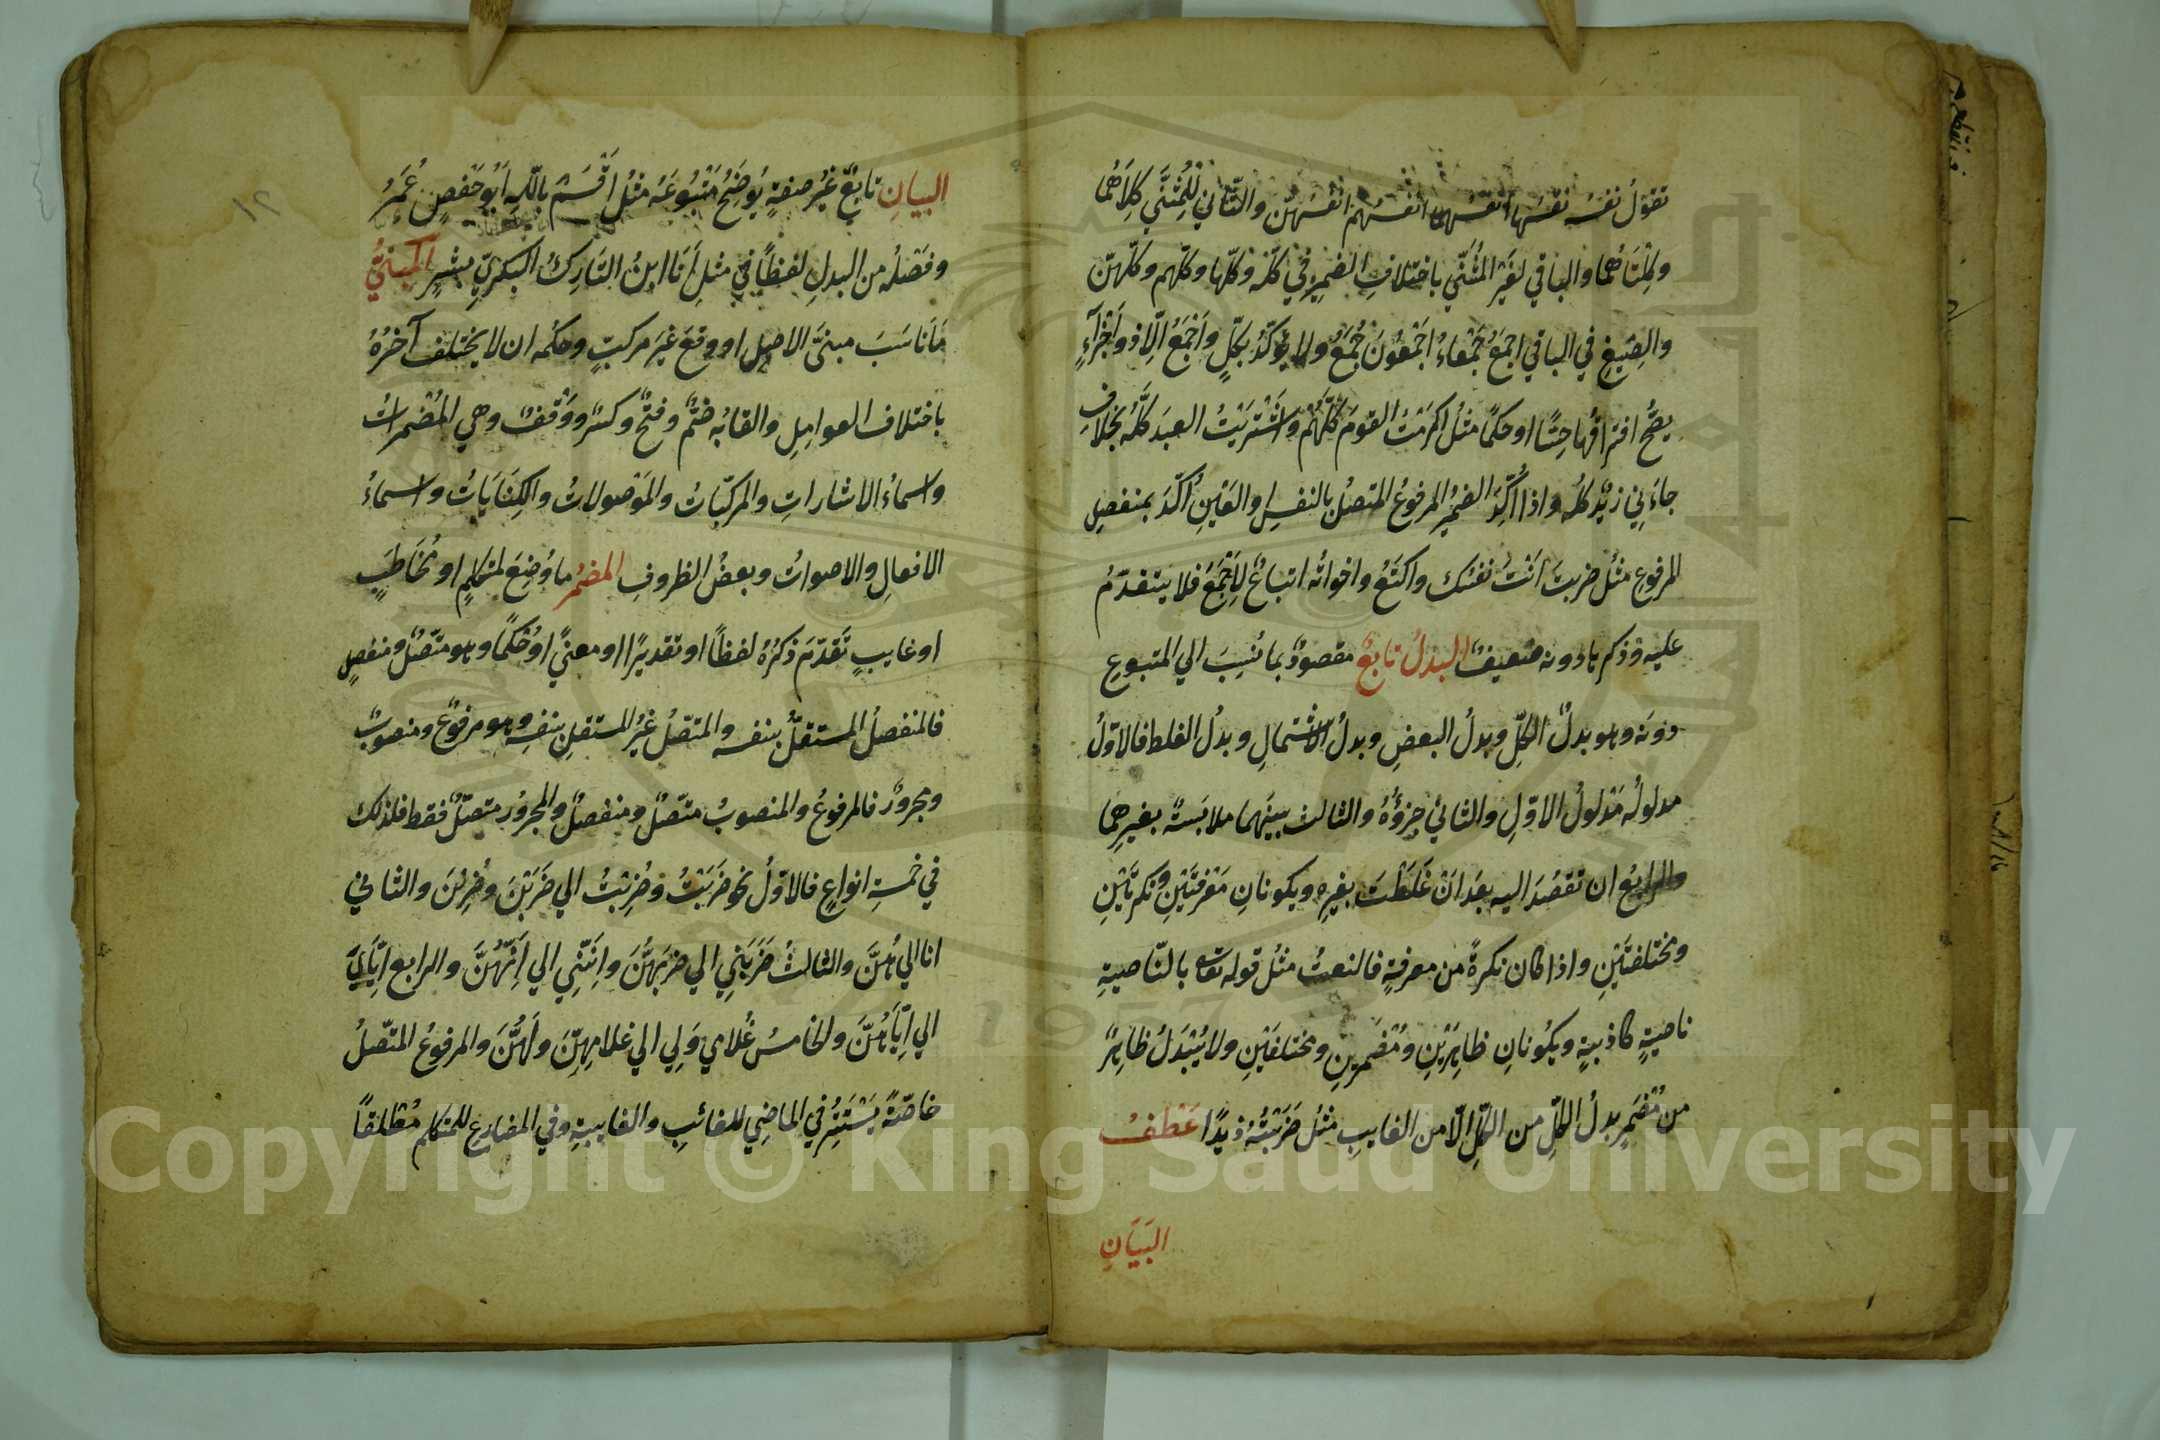 تقولُ نفسُه نفسُها انفسُهما انفسُهم انفسُهنّ والثاني للمثنَّى كلاهُما
وكِلْتاهُما والباقي لغيرِ المثنّي باختلافِ الضميرِ في كلّه وكلّها وكلّهم وكلّهنّ
والصِيَغِ في الباقي اجمَعُ جَمْعاءُ اَجْمَعُونَ جُمَعُ ولا يؤكّدُ بكلٍّ واَجْمَعُ الّا ذو اَجْزاءٍ
يصحُّ افتراقُها حِسًّا او حكمًا مثلُ اكرمتُ القومَ كلَّهُمْ واشْتَرَيْتُ العبدَ كلَّهُ بخلافِ
جاءَني زيدٌ كلُّه واذا اُكِّدَ الضميرُ المرفوعُ المتصلُ بالنفسِ والعَيْنِ اُكِّدَ بمنفصلٍ
المرفوعِ مثلُ ضربتَ اَنْتَ نفسُك واَكْتَعُ واخواتُه اتباعٌ لِاَجْمَعَ فلا يتقدّمُ
عليه وذكرها دونه ضعيفٌ البدلُ تابعٌ مقصودٌ بما نُسِبَ الي المتبوعِ
دونَه وهو بدلُ الكلِّ وبدلُ البعضِ وبدلُ الاشْتمالِ وبدلُ الغلط فالاوّلُ
مدلولُه مَدْلولُ الاوّلِ والثاني جزؤُهُ والثالث بينَهما ملابَسةٌ بغيرِهِما
والرابعُ ان تقصُدَ اليه بعدَ اَنْ غَلَطْتَ بغيرِه ويكونانِ مَعْرِفَتَيْنِ ونكرتَيْنِ
ومختلفتَيْنِ واذا كان نكرةً من معرفةٍ فالنعتُ مثلُ قوله تعالى بالنّاصيةِ
ناصيةٍ كاذبةٍ ويكُونانِ ظاهِرَيْنِ ومُضْمَرينِ ومختلفَيْنِ ولا يُبْدَلُ ظاهِرٌ
من مُضْمَرٍ بدلُ الكلِّ من الكلِّ الّا من الغايبِ مثلُ ضَرَبْتُهُ زيدًا عَطْفُ
البَيَانِ
البيانِ تابعٌ غيرُ صفةٍ يُوضِحُ مَتْبُوعَهُ مثلُ اَقْسَمَ باللّهِ اَبُو حَفْصٍ عُمَرُ
وفَصْلُه من البدلِ لفظاً في مثلِ اَنَا ابنُ التَّارِكِ البكريّ بِشْرٍ المبنيُّ
مَا ناسَبَ مبنيَّ الاصلِ او وقعَ غيرَ مركبٍ وحكمُه ان لا يختلف آخرُهُ
باختلاف العوامِلِ والقابُه ضمٌّ وفتحٌ وكسرٌ ووَقْفٌ وهي المُضْمَراتُ
واسماءُ الاشاراتِ والمركّباتُ والمَوْصُولاتُ والكِنَاياتُ واسماءُ
الافعالِ والاصواتُ وبعضُ الظروفِ المضمرُ ما وُضِعَ لمتكلمٍ او مُخَاطَبٍ
او غايبٍ تَقدّمَ ذكرُهُ لفظاً او تقديرًا او معنيً او حُكمًا وهو متّصلٌ ومنفصلٍ
فالمنفصلُ المستقلُّ بنفسه والمتصّلُ غيرُ المستقلِ بنفسِه وهو مرفوعٌ ومنصوبٌ
ومجرورٌ فالمرفوعُ والمنصوبُ متّصلٌ ومنفصلٌ والمجرورُ متصلٌ فقط فذلك
في خمسةِ انواعٍ فالاوّلُ نحو ضَرَبْتُ وضُرِبْتُ الي ضَرَبْنَ وضُرِبْنَ والثاني
انا الي هُنَّ والثالثُ ضَرَبَنِي الي ضرَبَهُنَّ واِنَّنِي الي اِنَّهُنَّ والرابع اِيّايَ
الي اِيّاهُنَّ والخامسُ غُلامِي وَلِي الي غلامِهِنَّ ولَهُنَّ والمرفوعُ المتّصلُ
خاصّةً يَسْتَتِرُ في الماضِي للغائبِ والغايبةِ وفي المضارعِ للمتكلم مُطلقًا
٢١
Copyright © King Saud University
1957